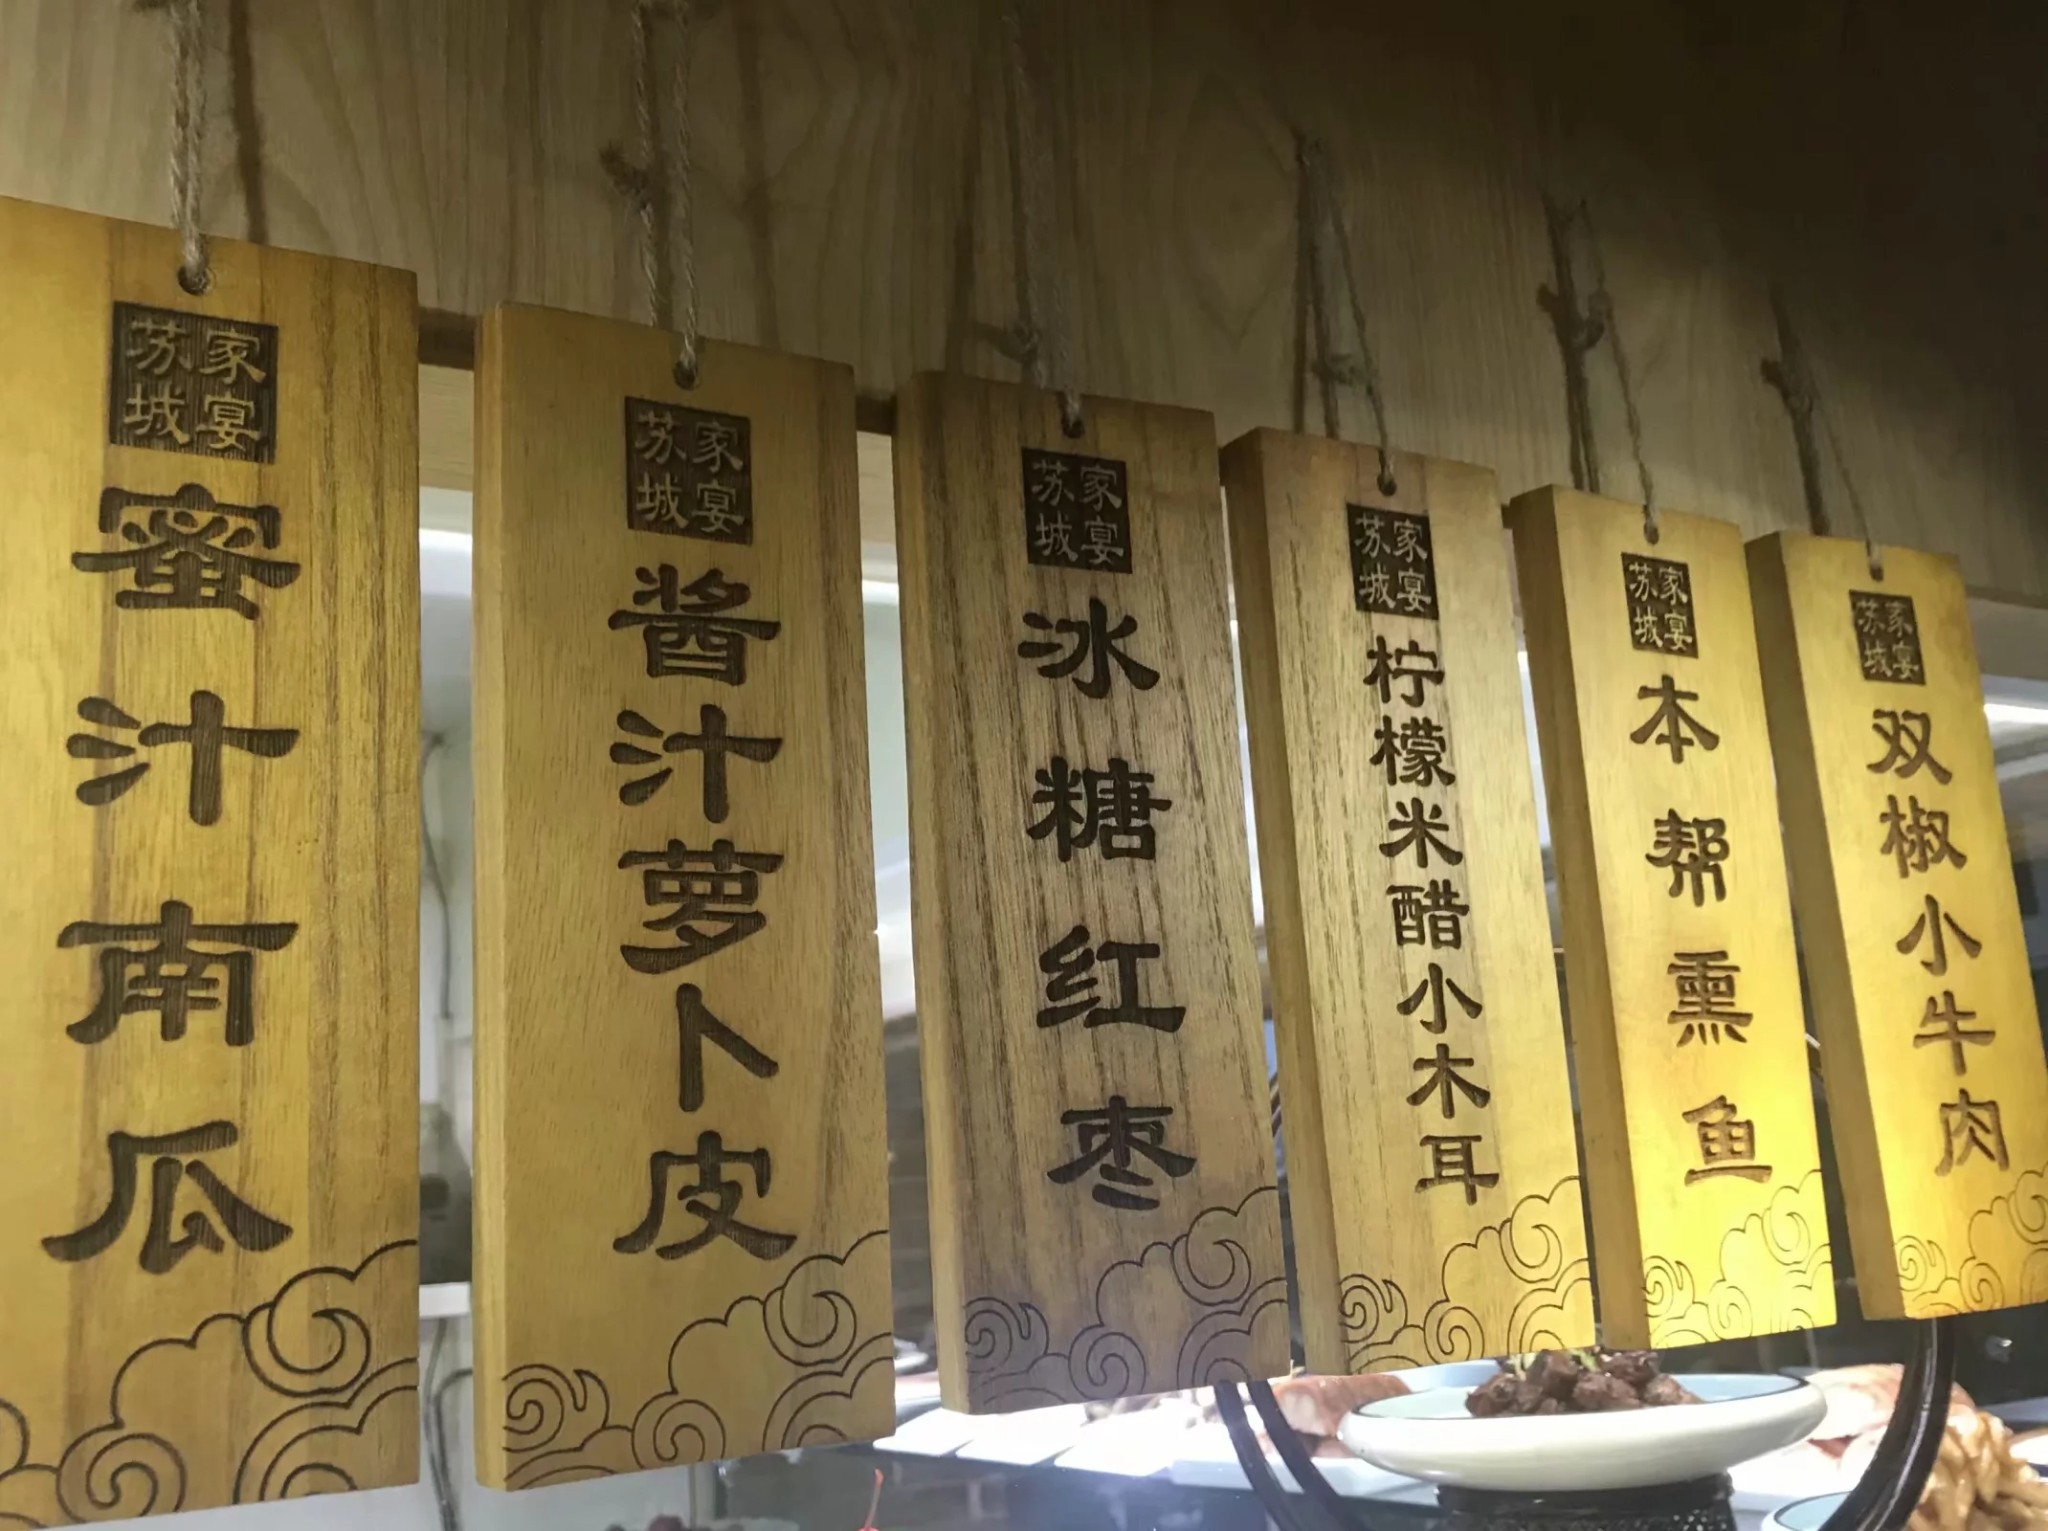 苏城家宴
蜜汁南瓜
苏城家宴
酱汁萝卜皮
苏城家宴
冰糖红枣
苏城家宴
柠檬米醋小木耳
苏城家宴
本帮熏鱼
苏城家宴
双椒小牛肉